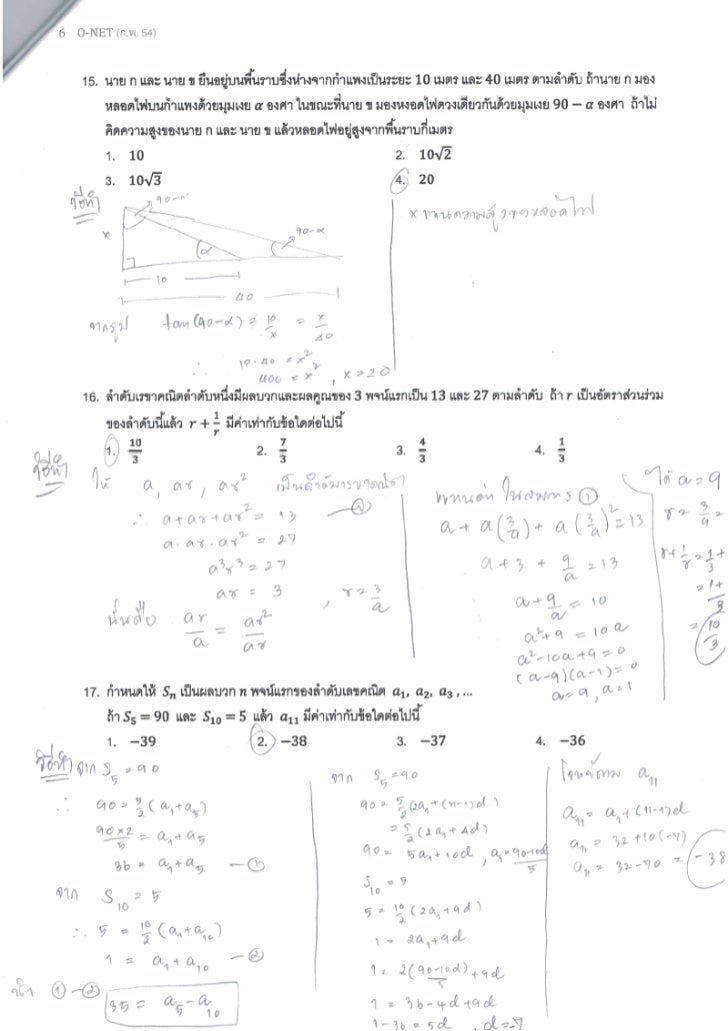 6 O-NET (ก.พ. 54)
15. นาย ก และ นาย ข ยืนอยู่บนพื้นราบซึ่งห่างจากกำแพงเป็นระยะ 10 เมตร และ 40 เมตร ตามลำดับ ถ้านาย ก มอง
หลอดไฟบนกำแพงด้วยมุมเงย α องศา ในขณะที่นาย ข มองหลอดไฟดวงเดียวกันด้วยมุมเงย 90 − α องศา ถ้าไม่
คิดความสูงของนาย ก และ นาย ข แล้วหลอดไฟอยู่สูงจากพื้นราบกี่เมตร
1. 10 2. 10√2
3. 10√3 4. 20
วิธีทำ
90-α
x แทนความสูงของหลอดไฟ
x
α
90-α
10
40
จากรูป tan(90-α) = 10/x = x/40
∴ 10·40 = x²
400 = x², x = 20
16. ลำดับเรขาคณิตลำดับหนึ่งมีผลบวกและผลคูณของ 3 พจน์แรกเป็น 13 และ 27 ตามลำดับ ถ้า r เป็นอัตราส่วนร่วม
ของลำดับนี้แล้ว r + 1/r มีค่าเท่ากับข้อใดต่อไปนี้
1. 10/3 2. 7/3 3. 4/3 4. 1/3
วิธีทำ
ให้ a, ar, ar² เป็นลำดับเรขาคณิต
∴ a+ar+ar² = 13 —①
a·ar·ar² = 27
a³r³ = 27
ar = 3, r = 3/a
นั่นคือ ar/a = ar²/ar
แทนค่า ในสมการ ①
a + a(3/a) + a(3/a)² = 13
a + 3 + 9/a = 13
a + 9/a = 10
a²+9 = 10a
a²-10a+9 = 0
(a-9)(a-1) = 0
a = 9, a = 1
ได้ a = 9
r = 3/9 =
r + 1/r = 1/3 +
= 1+/3
= 10/3
17. กำหนดให้ Sₙ เป็นผลบวก n พจน์แรกของลำดับเลขคณิต a₁, a₂, a₃, ...
ถ้า S₅ = 90 และ S₁₀ = 5 แล้ว a₁₁ มีค่าเท่ากับข้อใดต่อไปนี้
1. −39 2. −38 3. −37 4. −36
วิธีทำ จาก S₅ = 90
∴ 90 = 5/2 (a₁+a₅)
90×2/5 = a₁+a₅
36 = a₁+a₅ —①
จาก S₁₀ = 5
∴ 5 = 10/2 (a₁+a₁₀)
1 = a₁+a₁₀ —②
นำ ①-② 35 = a₅-a₁₀
จาก S₅ = 90
90 = 5/2 (2a₁+(n-1)d)
= 5/2 (2a₁+4d)
90 = 5a₁+10d, a₁ = 90-10d/5
S₁₀ = 5
5 = 10/2 (2a₁+9d)
1 = 2a₁+9d
1 = 2(90-10d/5)+9d
1 = 36-4d+9d
1-36 = 5d, d = -7
โจทย์ถาม a₁₁
a₁₁ = a₁+(11-1)d
a₁₁ = 32+10(-7)
a₁₁ = 32-70 = -38